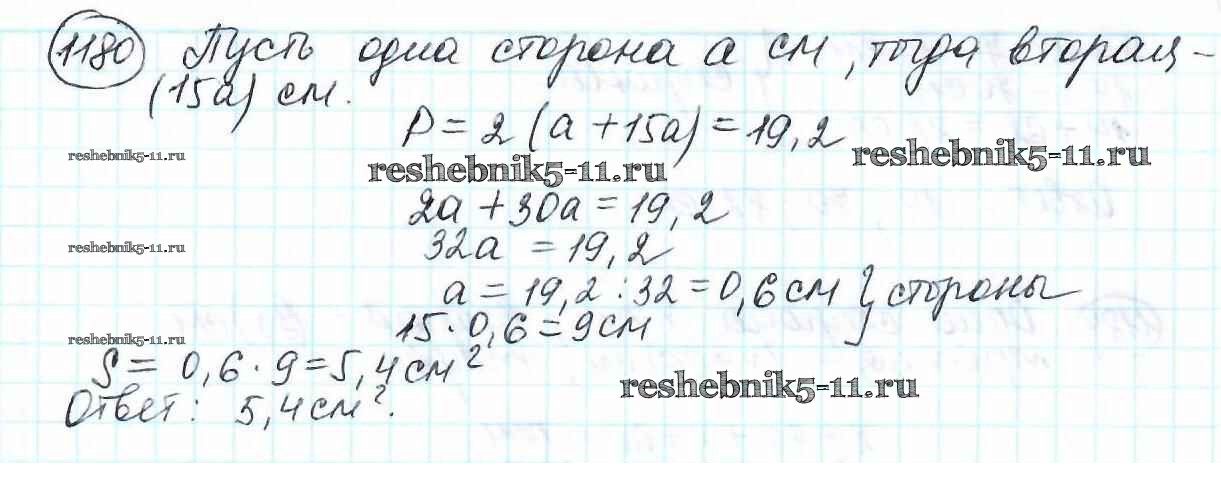 1180 Пусть одна сторона а см, тогда вторая -
(15а) см.
P = 2 (а + 15а) = 19,2
reshebnik5-11.ru
reshebnik5-11.ru
reshebnik5-11.ru
2а + 30а = 19,2
reshebnik5-11.ru
32а = 19,2
а = 19,2 : 32 = 0,6 см } стороны
15 · 0,6 = 9 см
reshebnik5-11.ru
S = 0,6 · 9 = 5,4 см²
reshebnik5-11.ru
Ответ: 5,4 см².